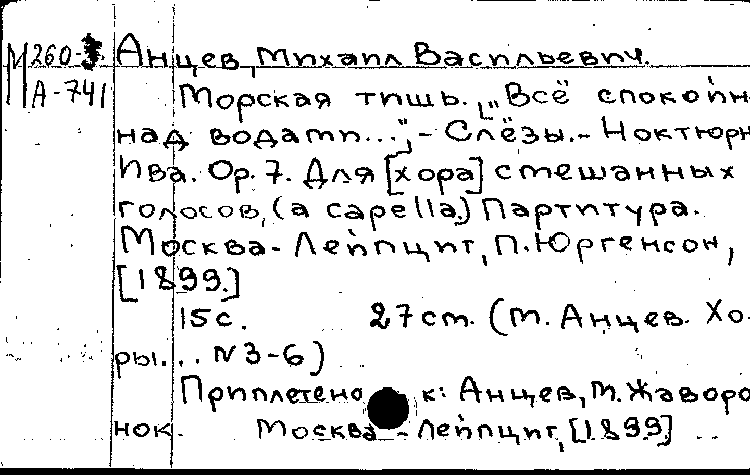 М260-3. Анцев, Михаил Васильевич.
А-741 Морская тишь. „Всё спокойн
над водами...", - Слёзы. - Ноктюрн
Ива. Op. 7. Для [хора] смешанных
голосов, (a capella.) Партитура.
Москва - Лейпциг, П. Юргенсон,
[1899.]
15 с. 27 cm. (М. Анцев. Хо-
ры... N 3-6)
Приплетено к: Анцев, М. Жаворо
нок. Москва - Лейпциг, [1899]